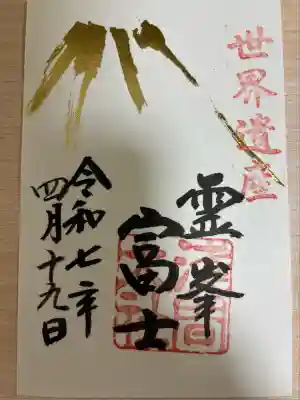 世界遺産
霊峯
富士
令和七年
四月十九日